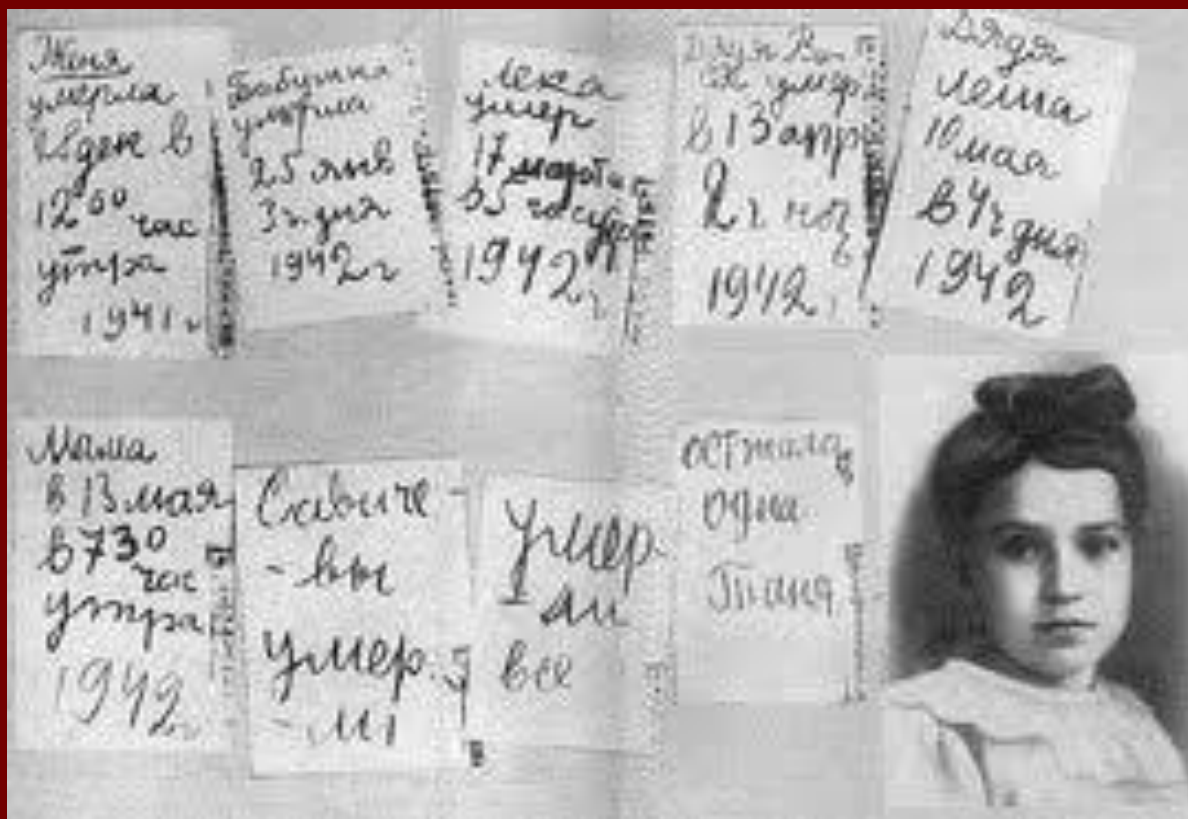 Женя
умерла
28 ден в
12⁰⁰ час
утра
1941 г
Бабушка
умерла
25 янв
3 ч. дня
1942 г
Лека
умер
17 марта
в 5 час утр
1942 г
Дядя Ва
ся умер
в 13 апр
2 ч ноч
ь
1942 г
Дядя
Леша
10 мая
в 4 ч дня
1942
Мама
в 13 мая
в 7 30
час
утра
1942 г
Савиче-
-вы
умер-
-ли
Умер-
-ли
все
осталась
одна
Таня